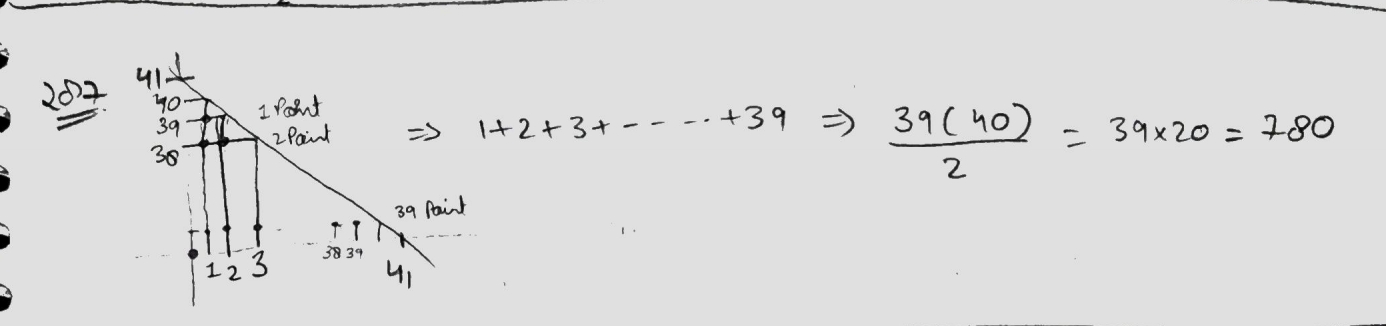 207
41
40
39
38
1 Point
2 Point
39 Point
38 39
1 2 3 41
=> 1+2+3+-----+39 => 39(40)/2 = 39x20 = 780